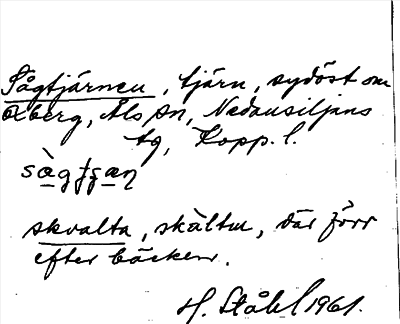 Sågtjärnen, tjärn, sydöst om
Oxberg, Äls sn, Nedansiljans
tg, Kopp. l.
skvalta, skältn, där förr
efter bäcken.
H. Ståhl 1961.